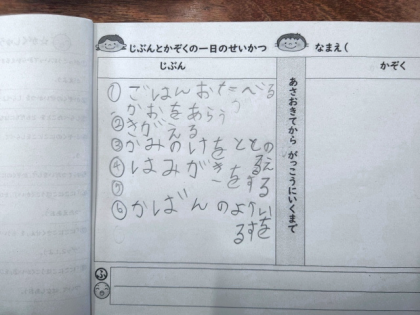 じぶんとかぞくの一日のせいかつ
なまえ(
じぶん
かぞく
①ごはんおたべる
かおをあらう
②きがえる
③かみのけをととの
える
④はみがきをする
⑤
⑥かばんのようい
をする
あさおきてから がっこうにいくまで